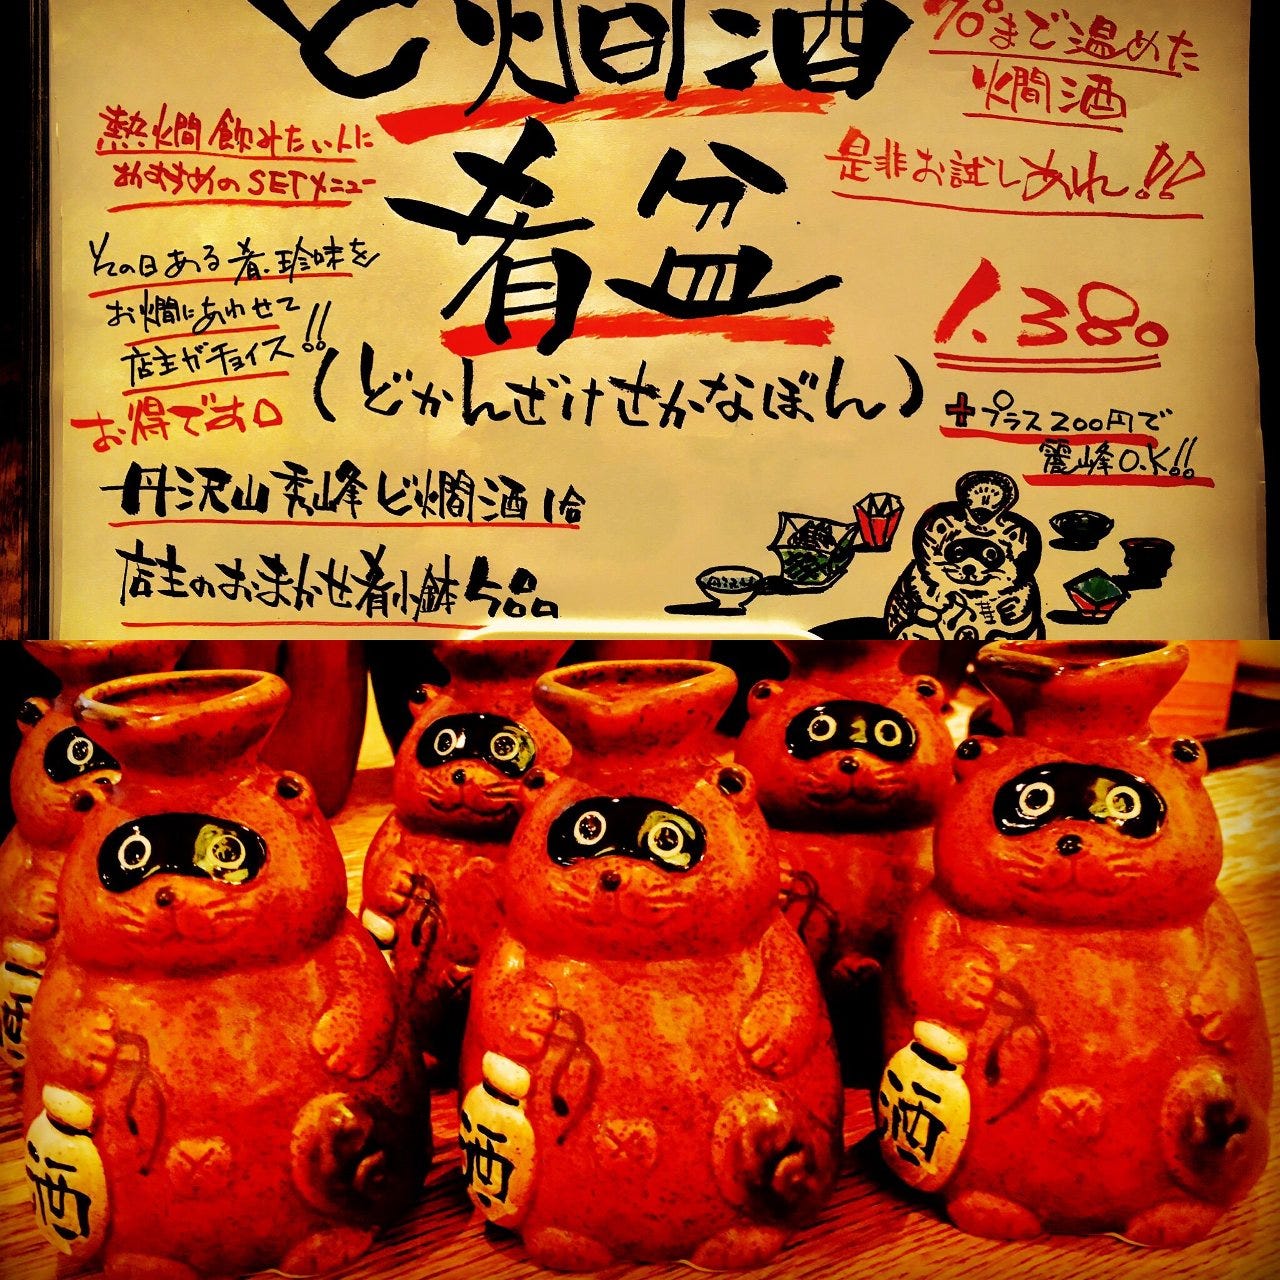 ど燗酒
肴盆
(どかんざけさかなぼん)
70°まで温めた
燗酒
是非お試しあれ!!
熱燗飲みたい人に
おすすめのSETメニュー
その日ある肴、珍味を
お燗にあわせて
店主がチョイス!!
お得です。
1.380
+プラス200円で
麗峰O.K!!
丹沢山 秀峰 ど燗酒1合
店主のおまかせ肴小鉢5品
酒
酒
酒
酒